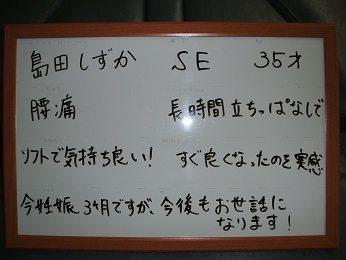 島田しずか SE 35才
腰痛 長時間立ちっぱなしで
ソフトで気持ち良い! すぐ良くなったのを実感
今妊娠3ヶ月ですが、今後もお世話に
なります!